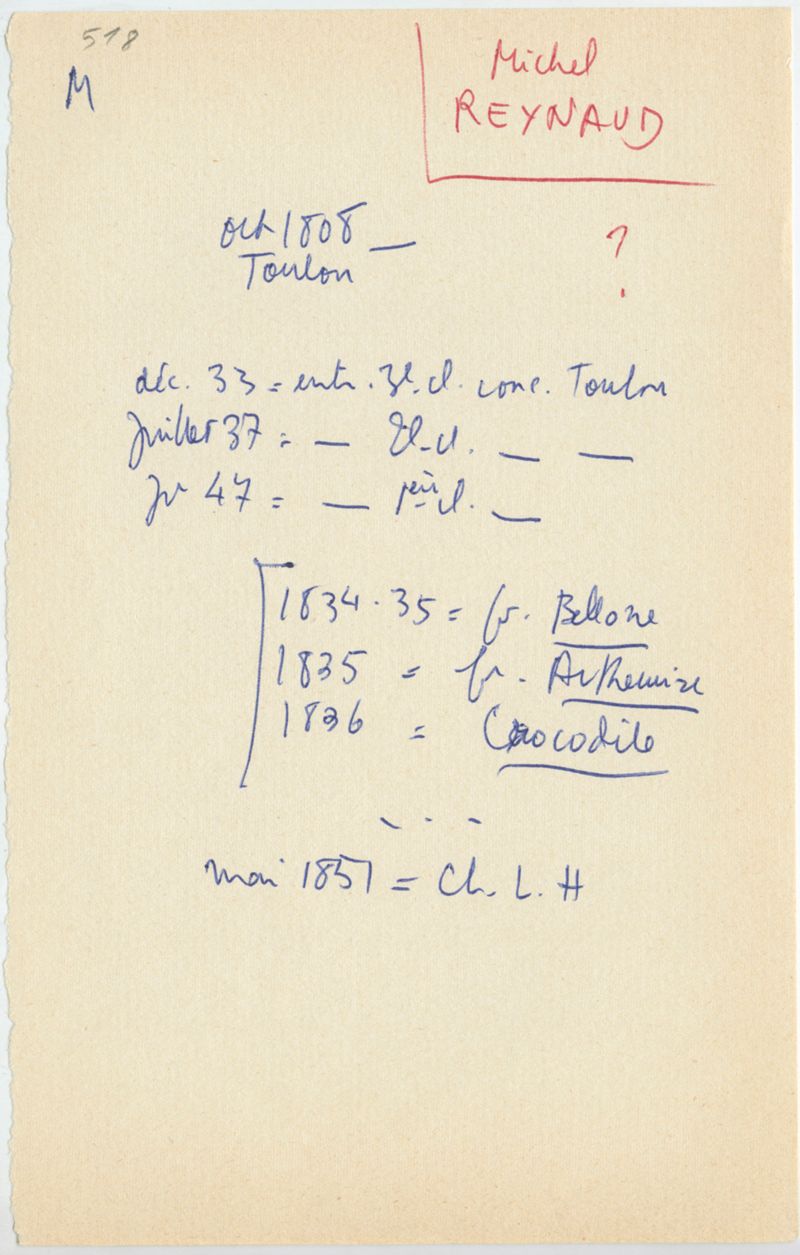 518
M
Michel
REYNAUD
oct 1808 —
Toulon
?
déc. 33 = entr. 3e. cl. conc. Toulon
Juillet 37 = — 2e. cl. — —
Jr 47 = — 1ère cl. —
1834.35 = fr. Bellone
1835 = fr. Arthemise
1836 = Crocodile
- . -
mai 1851 = Ch. L. H